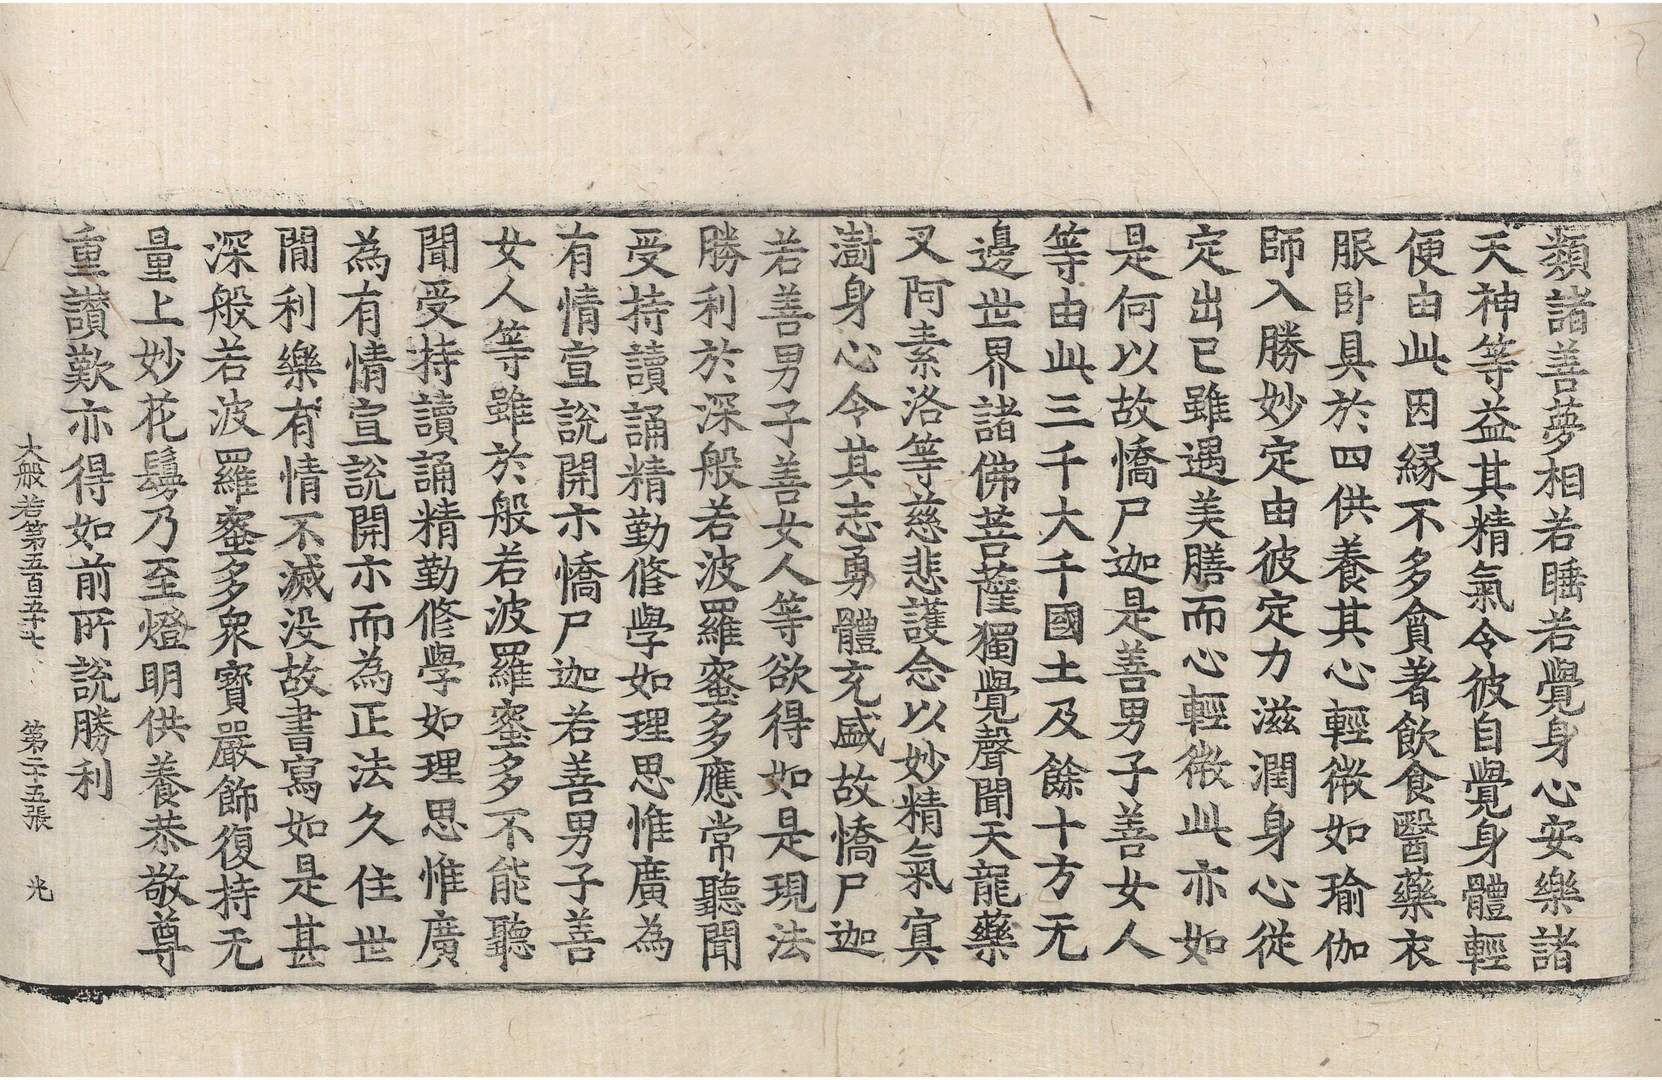 類諸善夢相若睡若覺身心安樂諸
天神等益其精氣令彼自覺身體輕
便由此因緣不多貪著飲食醫藥衣
服卧具於四供養其心輕微如瑜伽
師入勝妙定由彼定力滋潤身心從
定出已雖遇美膳而心輕微此亦如
是何以故憍尸迦是善男子善女人
等由此三千大千國土及餘十方无
邊世界諸佛菩薩獨覺聲聞天龍藥
叉阿素洛等慈悲護念以妙精氣冥
澍身心令其志勇體充盛故憍尸迦
若善男子善女人等欲得如是現法
勝利於深般若波羅蜜多應常聽聞
受持讀誦精勤修學如理思惟廣為
有情宣說開示憍尸迦若善男子善
女人等雖於般若波羅蜜多不能聽
聞受持讀誦精勤修學如理思惟廣
為有情宣說開示而為正法久住世
間利樂有情不滅没故書寫如是甚
深般若波羅蜜多衆寶嚴飾復持无
量上妙花鬘乃至燈明供養恭敬尊
重讃歎亦得如前所說勝利
大般若第五百五十七 第二十五張 光